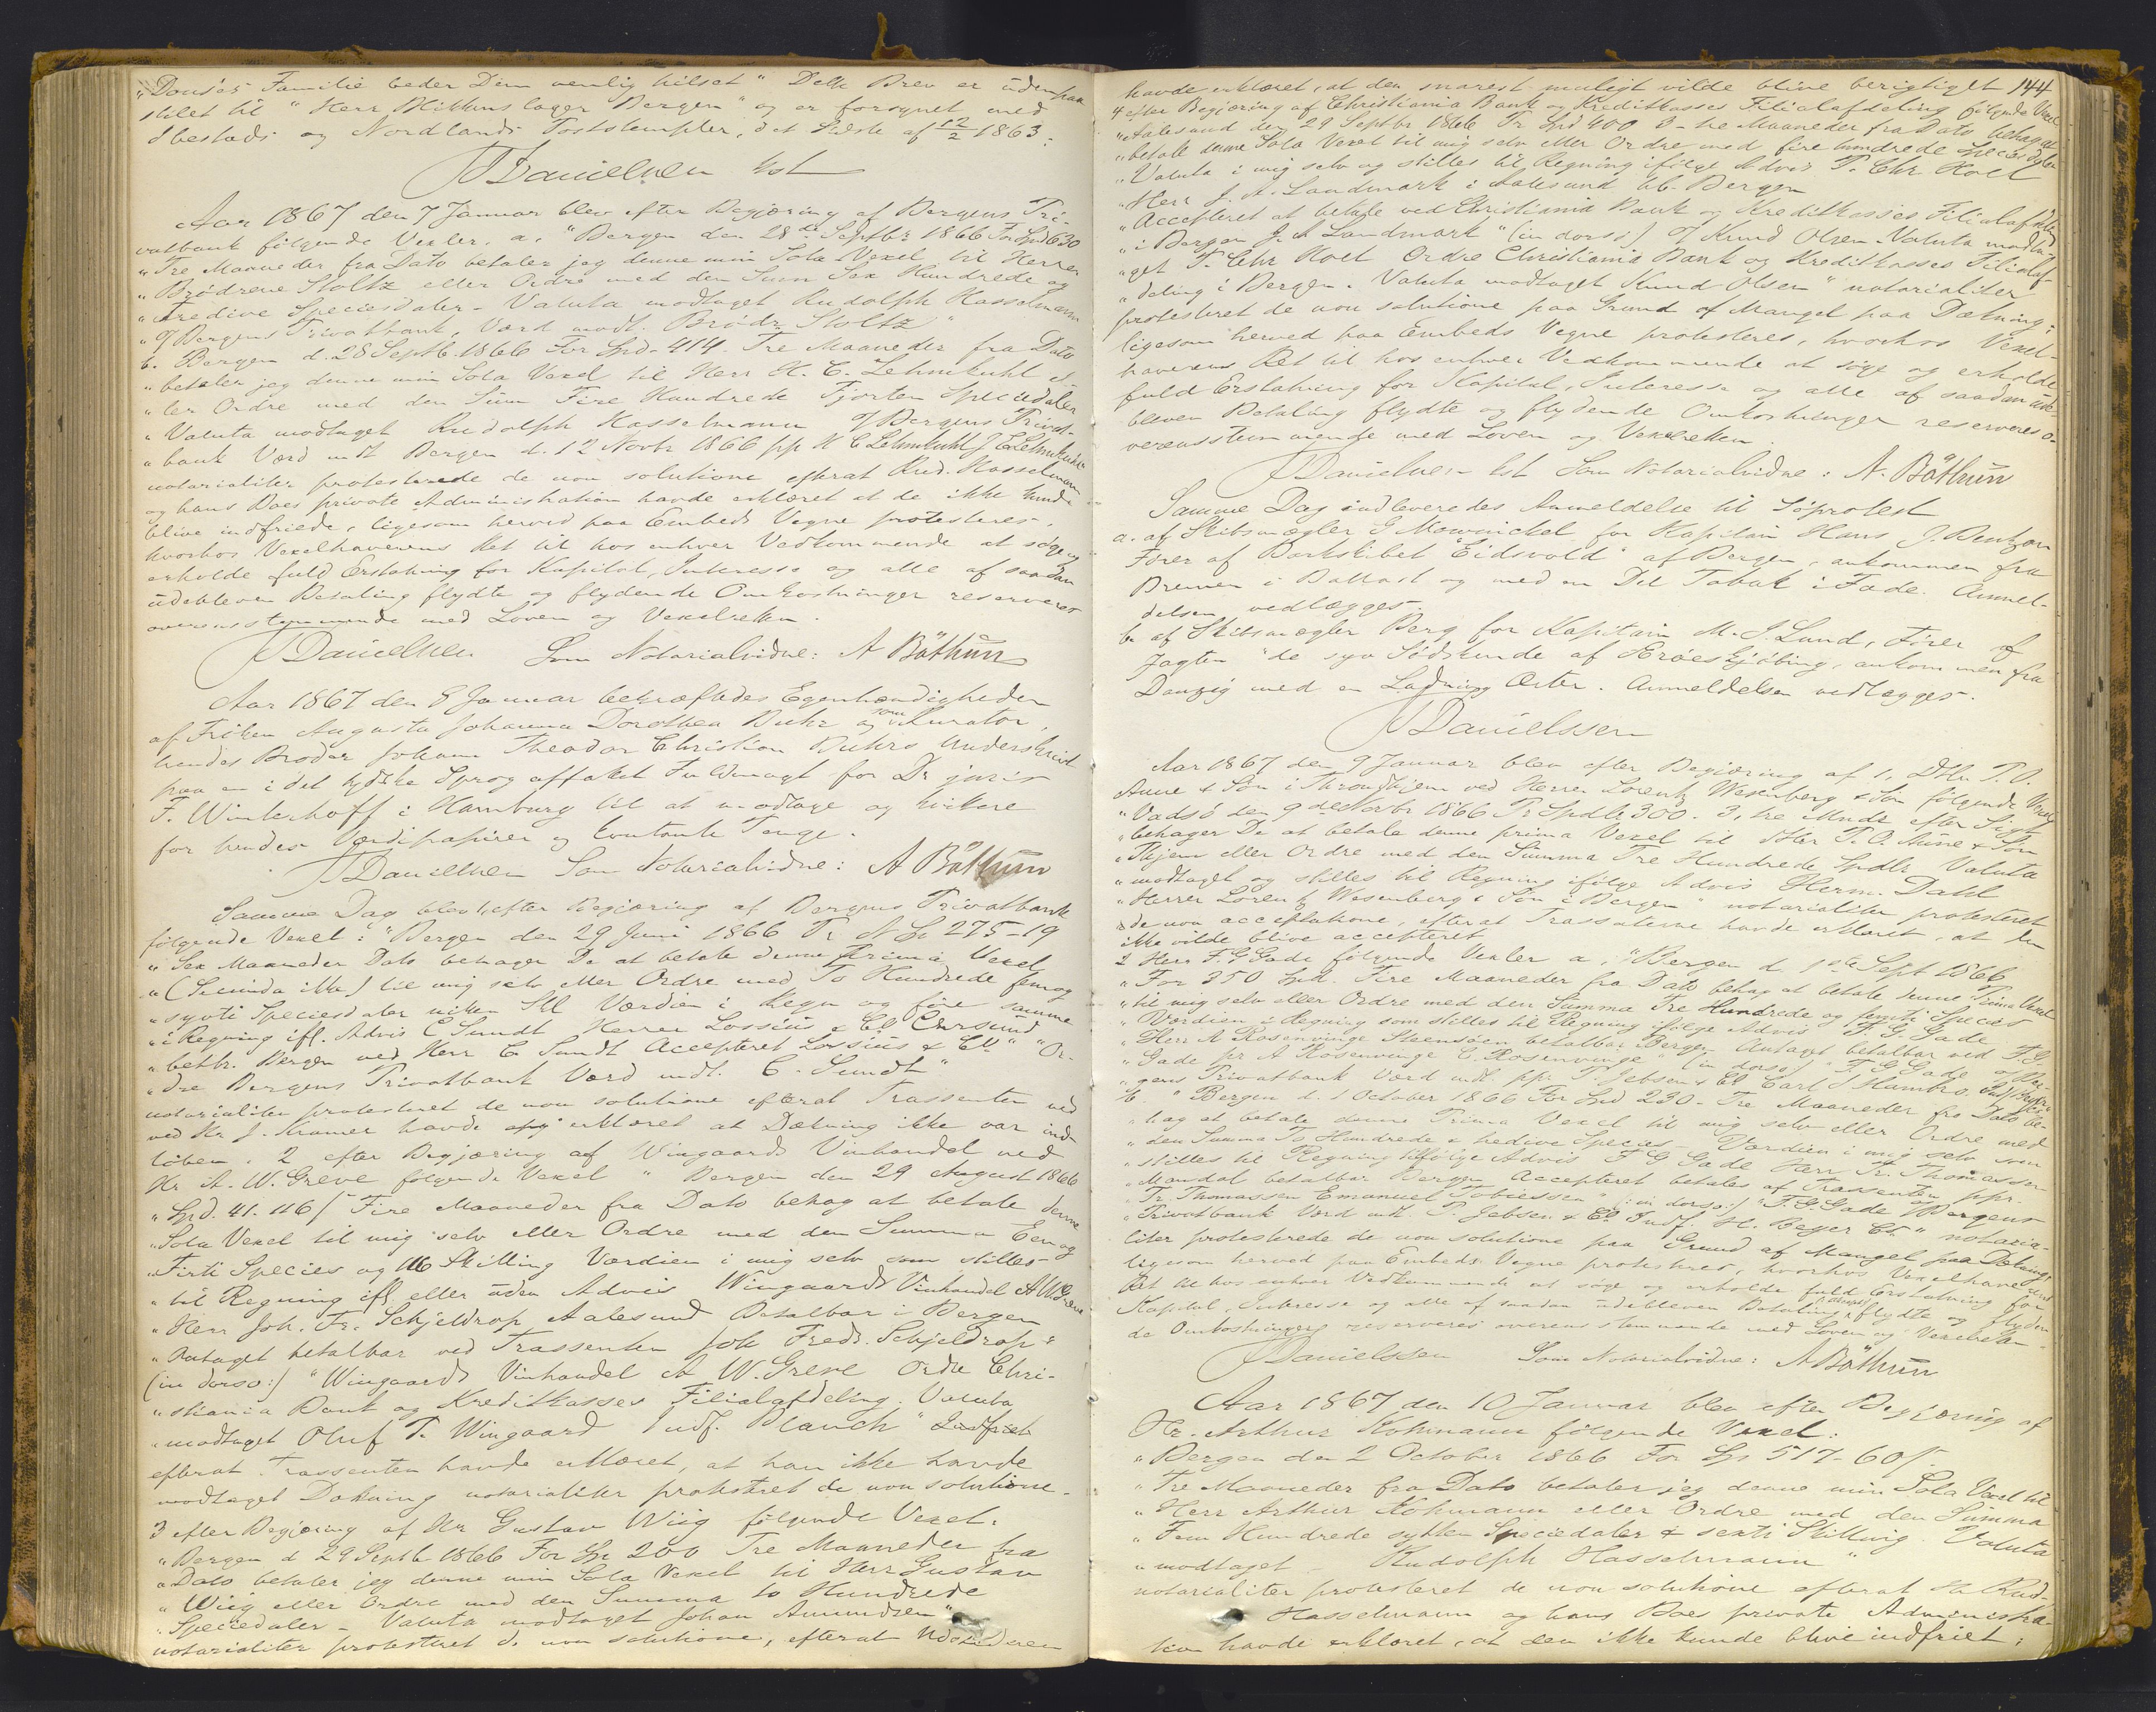 "Donses Familie beder Dem venlig hilset" Dette Brev er udenpaa
stilet til "Herr Blikkenslager Bergen" og er forsynet med
Ibestads og Nordlands Poststempler, det sidste af 12/2 1863.
JDanielssen kst
Aar 1867 den 7 Januar blev efter Begjæring af Bergens Pri-
vatbank følgende Vexler. a. "Bergen den 28de Septbr 1866 For Spd 630
"Tre Maaneder fra Dato betaler jeg denne min Sola Vexel til Herrer
"Brödrene Stoltz eller Ordre med den Sum Sex Hundrede og
"tredive Speciesdaler - Valuta modtaget Rudolph Hasselmann
"Bergens Privatbank, Værd modt. Brödr. Stoltz"
b. Bergen d. 28 Septb 1866 For Spd. 414. Tre Maaneder fra Dato
"betaler jeg denne min Sola Vexel til Herr H. C. Lehmkuhl el-
"ler Ordre med den Sum Fire Hundrede Fjorten Speciedaler
"Valuta modtaget Rudolph Hasselmann Bergens Privat-
"bank Værd mdt Bergen d. 12 Novbr 1866 pp H C Lehmkuhl J E Lehmkuhl
notarialiter protesterede de non solutione efterat Rud. Hasselmann
og hans Boes private Administration havde erklæret at de ikke kunde
blive indfriede, ligesom herved paa Embeds Vegne protesteres,
hvorhos Vexelhaverens Ret til hos enhver Vedkommende at søge og
erholde fuld Erstatning for Kapital, Interesse og alle af saadan
udebleven Betaling flydte og flydende Omkostninger reserveres
overensstemmende med Loven og Vexelretten.
JDanielssen Som Notarialvidne: A Böthun
Aar 1867 den 8 Januar bekræftedes Egenhændigheden
af Fröken Augusta Johanna Dorothea Buhr og som Kurator,
hendes Broder Johann Theodor Christian Buhrs Underskrift
paa en i det tydske Sprog affattet Fuldmagt for Dr juris
F. Winterhoff i Hamburg til at modtage og kvittere
for hendes Værdipapirer og Contante Penge.
JDanielssen Som Notarialvidne: A Böthun
Samme Dag blev 1, efter Begjæring af Bergens Privatbank
følgende Vexel: "Bergen den 29 Juni 1866 Pr Sp 275-19
"Sex Maaneder Dato behager De at betale denne Prima Vexel
"(Secunda ikke) til mig selv eller Ordre med To Hundrede fem og
"syvti Speciesdaler nitten Skl Værdien i Regn og före samme
"i Regning ifl. Advis C Sundt Herrer Lossius & Co Chrsund
"betbr. Bergen ved Herr C Sundt Accepteret Lossius & Co" "Or-
"dre Bergens Privatbank Værd mdt. C. Sundt"
notarialiter protesteret de non solutione efterat Trassenten ved
ved Hr J. Kramer havde erklæret at Dækning ikke var ind-
löben. 2 efter Begjæring af Wingaards Vinhandel ved
Hr A. W. Greve følgende Vexel "Bergen den 29 August 1866
"Spd. 41. 116/ Fire Maaneder fra Dato behag at betale denne
"Sola Vexel til mig selv eller Ordre med den Summa Een og
"Firti Species og 116 Skilling Værdien i mig selv som stilles
"til Regning ifl. eller uden Advis Wingaards Vinhandel A W Greve
"Herr Joh. Fr. Schjeldrop Aalesund Betalbar i Bergen
"Antaget betalbar ved Trassenten Joh Fredr. Schjeldrop"
(in dorso:) "Wingaards Vinhandel A W. Greve Ordre Chri-
"stiania Bank og Kreditkasses Filialafdeling. Valuta
"modtaget Oluf T. Wingaard Indf. Blauch"
efterat Trassenten havde erklæret, at han ikke havde
modtaget Dækning notarialiter protesteret de non solutione.
3 efter Begjæring af Hr Gustav Wiig følgende Vexel.
"Bergen d 29 Septb 1866 For Sp 200 Tre Maaneder fra
"Dato betaler jeg denne min Sola Vexel til Herr Gustav
"Wiig eller Ordre med den Summa to Hundrede
"Speciedaler - Valuta modtaget Johan Amundsen"
notarialiter protesteret de non solutione, efterat Udstederen
144
havde erklæret, at den snarest muligt vilde blive berigtiget
4 efter Begjæring af Christiania Bank og Kreditkasses Filialafdeling følgende Vexel
"Aalesund den 29 Septbr 1866 Pr Spd 400 3-tre Maaneder fra Dato behag at
"betale denne Sola Vexel til mig selv eller Ordre med fire hundrede Speciesdaler
"Valuta i mig selv og stilles til Regning ifølge Advis P. Chr Holt
"Herr J. A. Landmark i Aalesund bb. Bergen
"Accepteret at betale ved Christiania Bank og Kreditkasses Filialafdeling
"i Bergen J. A Landmark" (in dorso:) Knud Olsen Valuta modta-
"get P. Chr Holt Ordre Christiania Bank og Kreditkasses Filialaf-
"deling i Bergen. Valuta modtaget Knud Olsen" notarialiter
protesteret de non solutione paa Grund af Mangel paa Dækning,
ligesom herved paa Embeds Vegne protesteres, hvorhos Vexel-
haverens Ret til hos enhver Vedkommende at søge og erholde
fuld Erstatning for Kapital, Interesse og alle af saadan ude-
bleven Betaling flydte og flydende Omkostninger reserveres o-
verensstemmende med Loven og Vexelretten.
JDanielssen kst Som Notarialvidne: A. Böthun
Samme Dag indleveredes Anmeldelse til Söprotest
a. af Skibsmægler G Mowinckel for Kapitain Hans J. Bentzon
Förer af Barkskibet "Eidsvold" af Bergen, ankommen fra
Bremen i Ballast og med en Del Tobak i Fade. Anmel-
delsen vedlægges.
b. af Skibsmægler Berg for Kapitain M. J. Lund, Förer af
Jagten "de syv Södskende af Æröeskjöbing, ankommen fra
Danzig med en Ladning Erter. Anmeldelsen vedlægges.
JDanielssen
Aar 1867 den 9 Januar blev efter Begjæring af 1, DHr. P. O.
Aune & Sön i Throndhjem ved Herrer Lorentz Wesenberg & Sön følgende Vexel
"Vadsö den 9de Novbr 1866 Pr Spdlr 300. 3, tre Mndr efter Sigt
"behager De at betale denne prima Vexel til DHer P. O. Aune & Sön
"Thjem eller Ordre med den Summa Tre Hundrede Spdlr Valuta
"modtaget og stilles til Regning ifölge Advis Herm. Dahl
"Herrer Lorentz Wesenberg & Sön i Bergen" notarialiter protesteret
de non acceptatione, efterat Trassaterne havde erklæret, at den
ikke vilde blive accepteret
2 Herr F. G Gade følgende Vexler a. "Bergen d. 1ste Sept 1866
"For 350 Spd. Fire Maaneder fra Dato behag at betale denne Prima Vexel
"til mig selv eller Ordre med den Summa Tre Hundrede og femti Species
"Værdien i Regning som stilles til Regning ifølge Advis F. G. Gade
"Herr A Rosenvinge Steensöen betalbar Bergen Antaget betalbar ved F. G
"Gade pr A Rosenvinge C. Rosenvinge" (in dorso) "F. G. Gade Ber-
"gens Privatbank Værd mdt. pp. P. Jebsen & Co Carl J Hambro
b. "Bergen d. 1 October 1866 For Spd 230 - Tre Maaneder fra Dato be-
"hag at betale denne Prima Vexel til mig selv eller Ordre med
"den Summa To Hundrede & tredive Species - Værdien i mig selv som
"stilles til Regning ifølge Advis F G Gade Herr Fr. Thomassen
"Mandal betalbar Bergen Accepteret betales af Trassenten ppr.
"Fr. Thomassen Emanuel Tobiessen" (: in dorso:) "F. G. Gade Bergens
"Privatbank Værd mdt. P. Jebsen & Co Indf. H. Beyer Co" notaria-
liter protesterede de non solutione paa Grund af Mangel paa Dækning,
ligesom herved paa Embeds Vegne protesteres, hvorhos Vexelhaverens
Ret til hos enhver Vedkommende at søge og erholde fuld Erstatning for
Kapital, Interesse og alle af saadan udebleven Betaling flydte og flyden-
de Omkostninger reserveres overensstemmende med Loven og Vexelretten
JDanielssen Som Notarialvidne: A Böthun
Aar 1867 den 10 Januar blev efter Begjæring af
Hr. Arthur Kohmann følgende Vexel:
"Bergen den 2 October 1866 For Sp 517-60/
"Tre Maaneder fra Dato betaler jeg denne min Sola Vexel til
"Herr Arthur Kohmann eller Ordre med den Summa
"Fem Hundrede sytten Speciedaler & sexti Skilling. Valuta
"modtaget Rudolph Hasselmann"
notarialiter protesteret de non solutione efterat Hr Rud-
Hasselmann og hans Boes private Administra-
tion havde erklæret, at den ikke kunde blive indfriet;